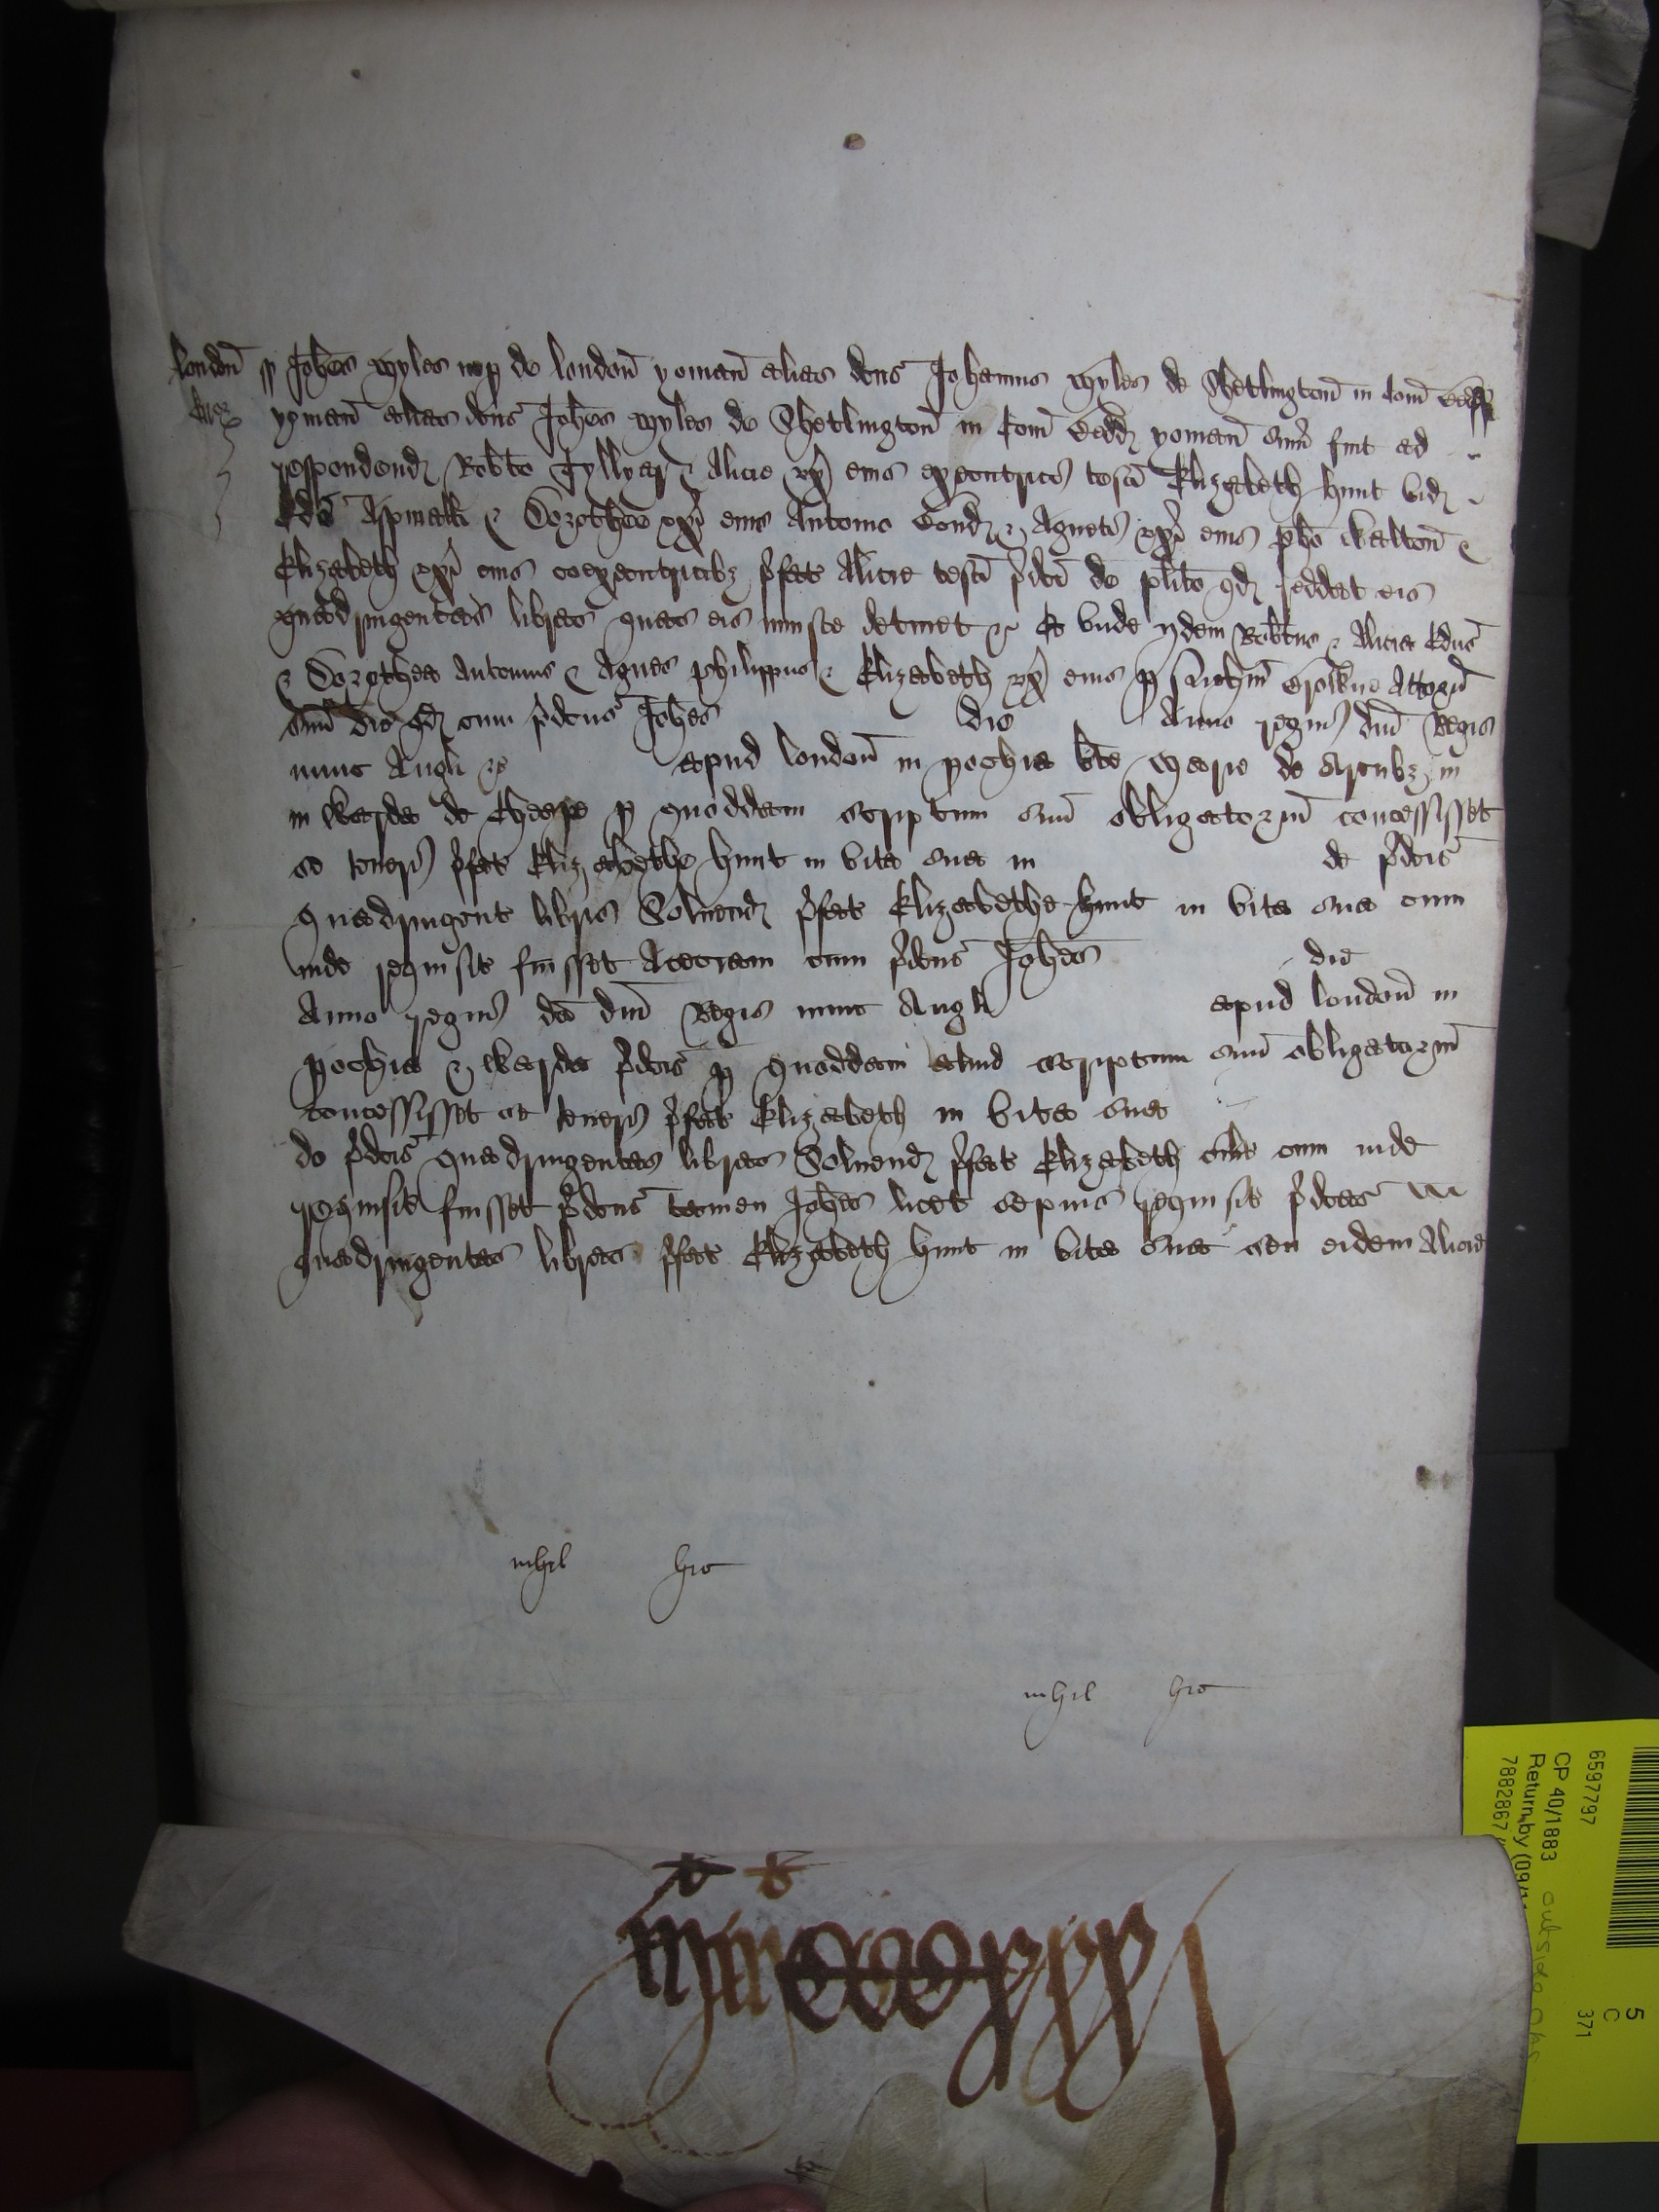 londoñ ss Joħes Myles nup de londoñ yomañ alias dcũs Johannes Myles de Shetlington in Com̃ Bedd
yomañ alias dcũs Joħes Myles de Shetlington in Com̃ Bedd yomañ sum̃ fuit ad
respondend Rob̃to Tyllyar & Alicie ux̃ eius executrici testi Elizabeth hunt vid
Ed̃o Aspinall & Dorothee ux̃i eius Antonio Bond & Agneti ux̃i eius pho Walton &
Elizabeth ux̃i eius coexecutricibz p̃fat Alicie testi p̃dci de plito qd reddat eis
quadringentas libras quas eis iniuste detinet &c Et unde ijdem Rob̃tus & Alicia Edũs
& Dorothea Antonius & Agnes philippus & Elizabeth ux̃ eius p Attorñ
suũ dic qd cum p̃dcũs Joħes die Anno regni dñi Regis
nunc Angli &c apud londoñ in pochia b̃te Marie de Arcubz in
in Warda de Cheape p quoddam scriptum suũ obligatoriũ concessisset
se teneri p̃fat Elizabethe hunt in vita sua in de p̃dcis
quadringent libris Solvend p̃fat Elizabethe hunt in vita sua cum
inde requisit fuisset Aceciam cum p̃dcũs Joħes die
Anno regni dc̃i dñi Regis nunc Angli apud londoñ in
pochia & Warda p̃dcis p quoddam aliud scriptum suũ obligatoriũ
concessisset se teneri p̃fate Elizabeth in vita sua
de p̃dcis quadringentas libras Solvend p̃fat Elizabeth cum inde
requisit fuisset p̃dcũs tamen Joħes licet sepius requisit p̃dcas
quadringentas libras p̃fat Elizabeth hunt in vita sua seu eidem Alicie
nihil hic
nihil hic
6597797
CP 40/1883
Return by (09/
7882867
5
C
371